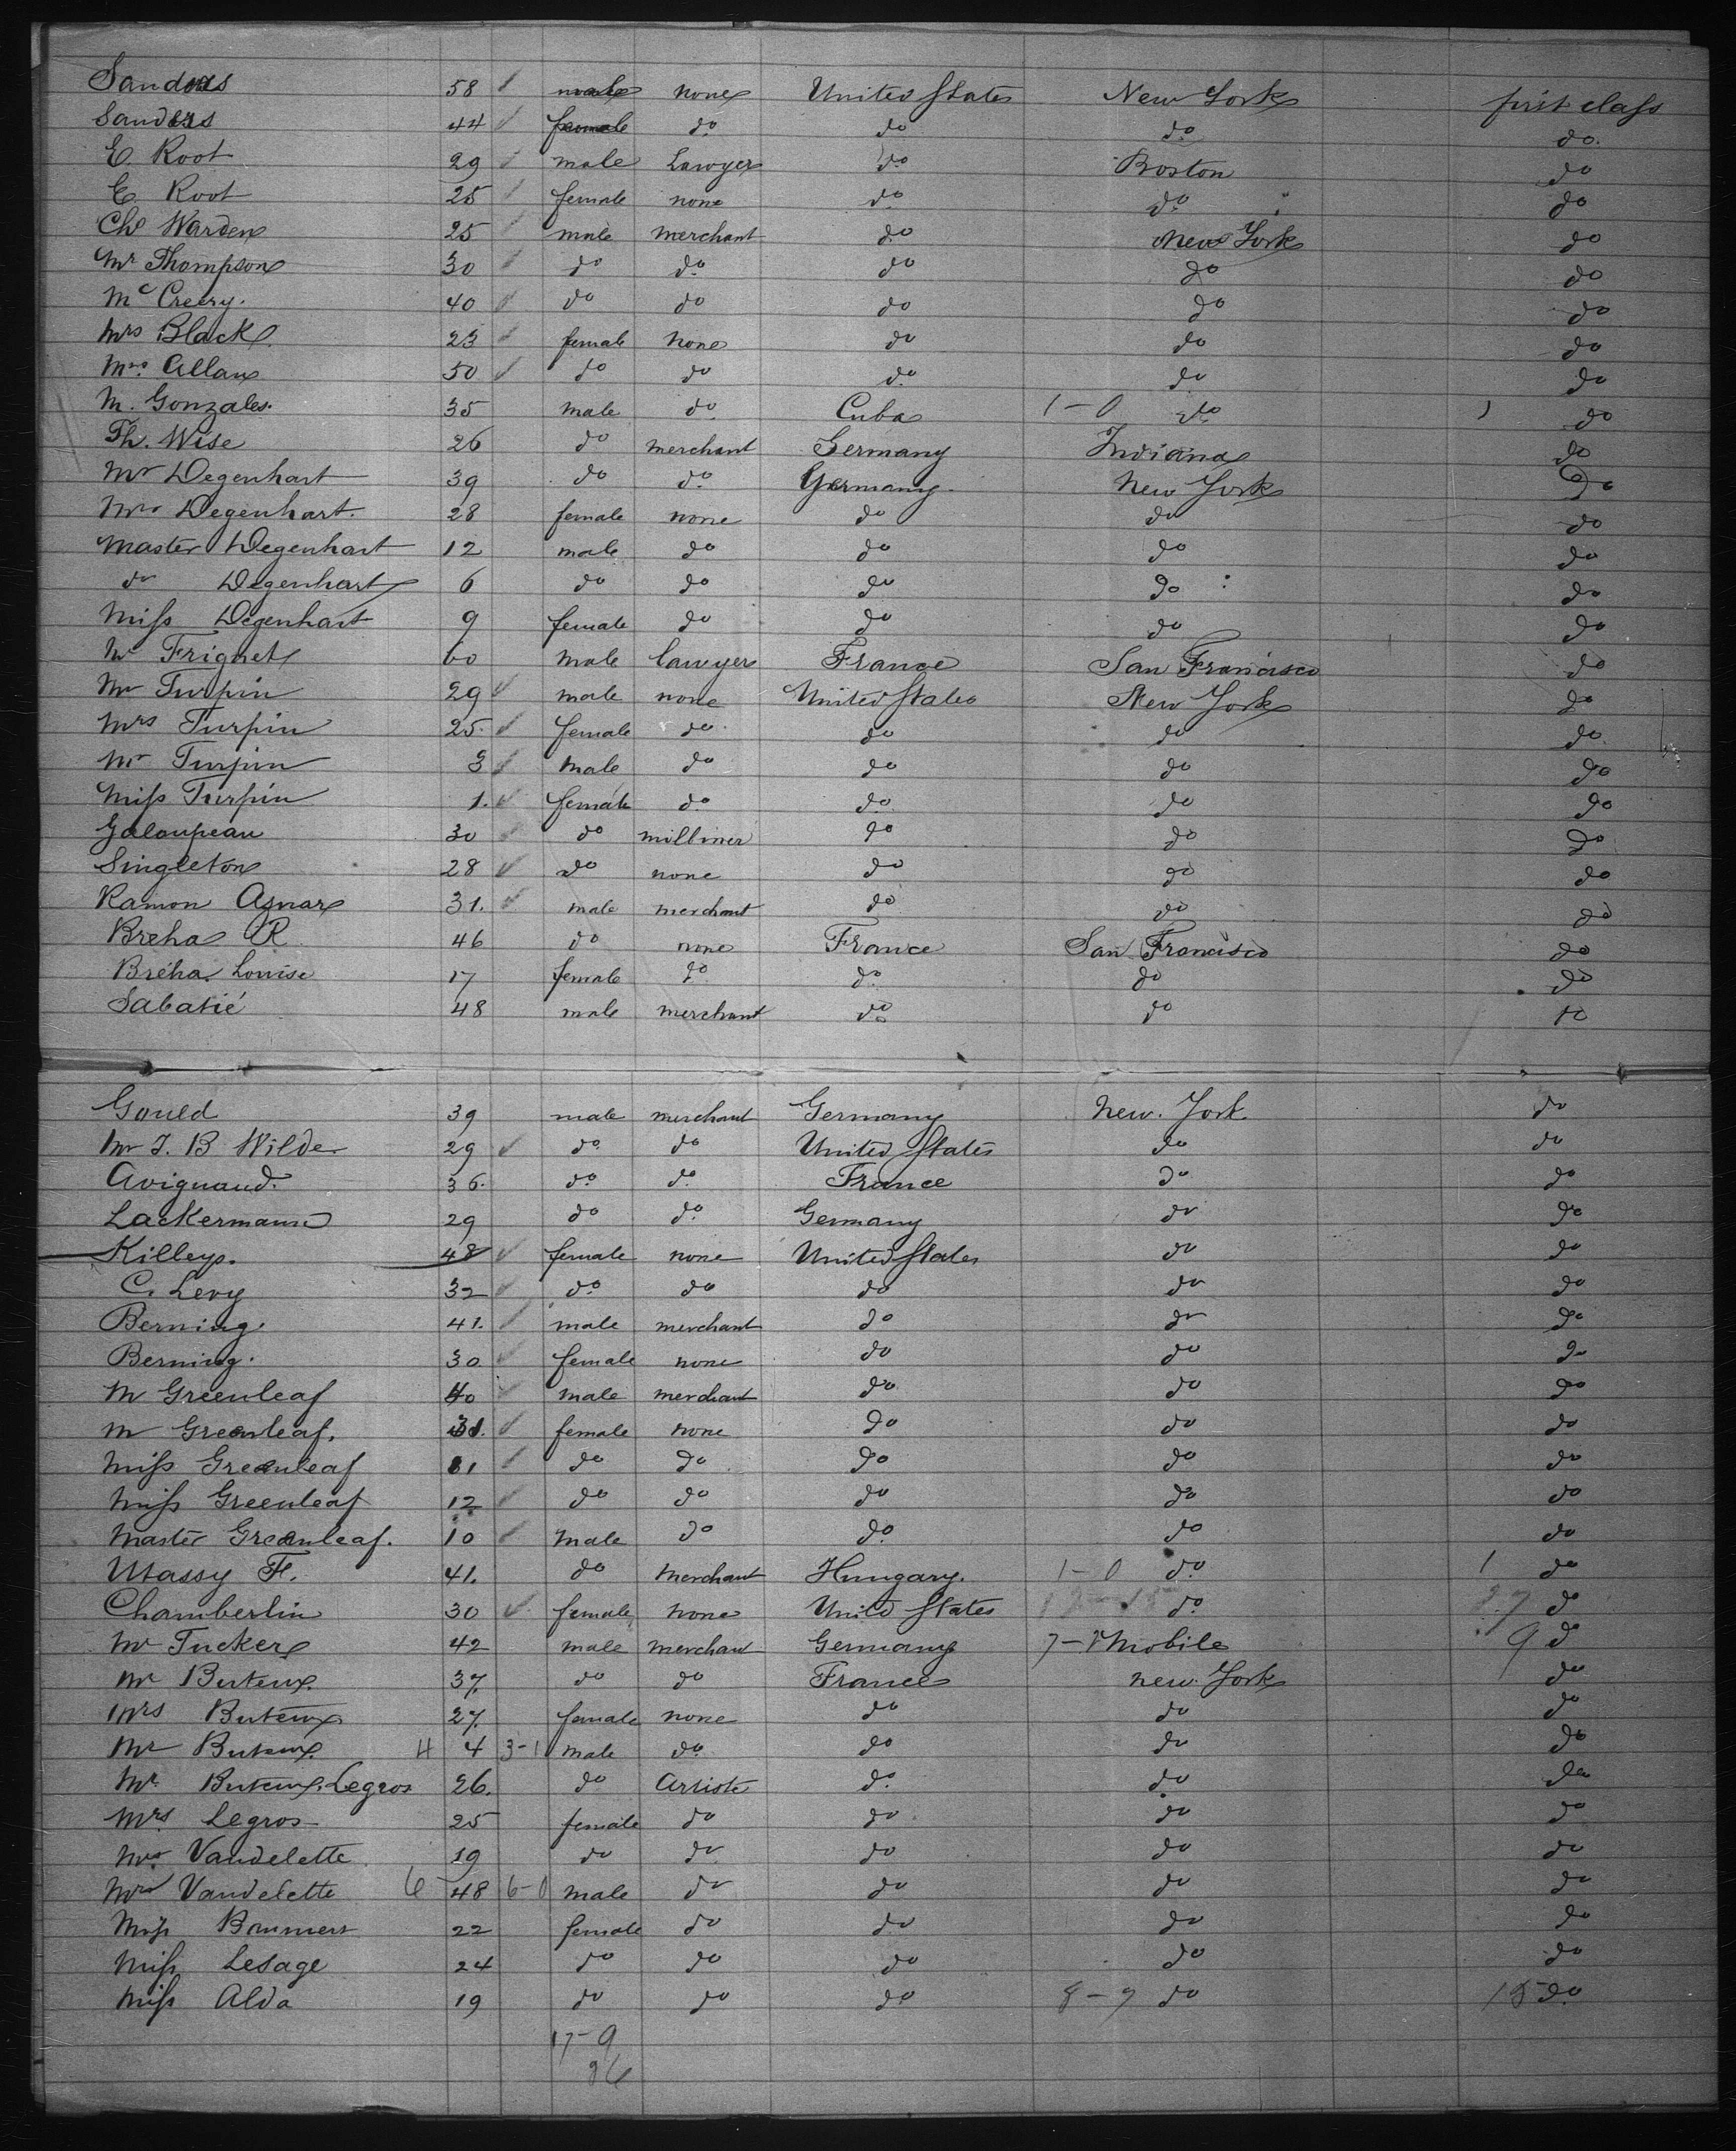 Sanders 58 male none United States New York first class
Sanders 44 female do do do do
E. Root 29 male Lawyer do Boston do
E. Root 25 female none do do do
Chs Warden 25 male merchant do New York do
Mr Thompson 30 do do do do do
Mc Creery. 40 do do do do do
Mrs Black 23 female none do do do
Mrs. Allan 50 do do do do do
M. Gonzales. 35 male do Cuba 1-0 do 1 do
Th. Wise 26 do merchant Germany Indiana do
Mr Degenhart 39 do do Germany New York Do
Mrs Degenhart. 28 female none do do do
Master Degenhart 12 male do do do do
do Degenhart 6 do do do do do
Miss Degenhart 9 female do do do do
Mr Frignet 60 male lawyer France San Francisco do
Mr Turpin 29 male none United States New York do
Mrs Turpin 25. female do do do do
Mr Turpin 3 male do do do do
Miss Turpin 1. female do do do do
Galoupeau 30 do milliner do do do
Singleton 28 do none do do do
Ramon Aznar 31. male merchant do do do
Breha R 46 do none France San Francisco do
Bréha Louise 17 female do do do do
Sabatié 48 male merchant do do do
Gould 39 male merchant Germany New. York do
Mr J. B Wilde 29 do do United States do do
Avignaud. 36. do do France do do
Lackermann 29 do do Germany do do
Killey. 48 female none United States do do
C. Levy 32 do do do do do
Berning. 41. male merchant do do do
Berning. 30 female none do do do
M Greenleaf 40 male merchant do do do
M Greenleaf. 31. female none do do do
Miss Greenleaf 11 do do do do do
Miss Greenleaf 12 do do do do do
Master Greenleaf. 10 male do do do do
Utassy F. 41. do merchant Hungary. 1-0 do 1 do
Chamberlin 30 female none United States do 27 do
Mr Tucker 42 male merchant Germany Mobile 9 do
Mr Buteux. 37. do do France New York do
Mrs Buteux 27. female none do do do
Mr Buteux. 4 4 3-1 male do do do do
Mr. Buteux. Legros 26. do Artiste do do do
Mrs. Legros 25 female do do do do
Mrs. Vandelette 19 do do do do do
Mr Vandelette 6 48 6-0 male do do do do
Miss Baumers 22 female do do do do
Miss Lesage 24 do do do do do
Miss Alda 19 do do do 8-7 do 15 do
17-9
26